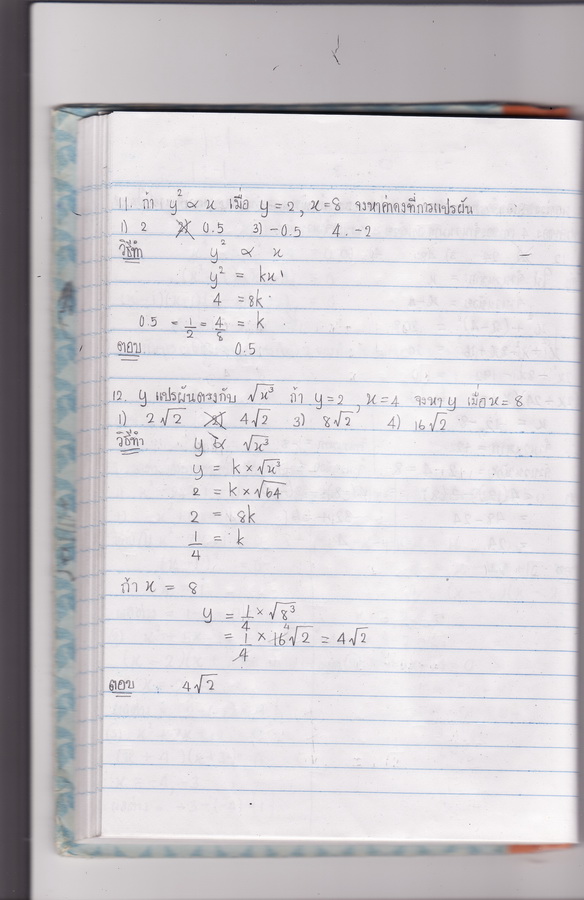 11. ถ้า y² ∝ x เมื่อ y = 2, x = 8 จงหาค่าคงที่การแปรผัน
1) 2 2) 0.5 3) -0.5 4. -2
วิธีทำ y² ∝ x
y² = kx
4 = 8k
0.5 = 1/2 = 4/8 = k
ตอบ 0.5
12. y แปรผันตรงกับ √x³ ถ้า y = 2, x = 4 จงหา y เมื่อ x = 8
1) 2√2 2) 4√2 3) 8√2 4) 16√2
วิธีทำ y ∝ √x³
y = k × √x³
2 = k × √64
2 = 8k
1/4 = k
ถ้า x = 8
y = 1/4 × √8³
= 1/4 × 16√2 = 4√2
ตอบ 4√2